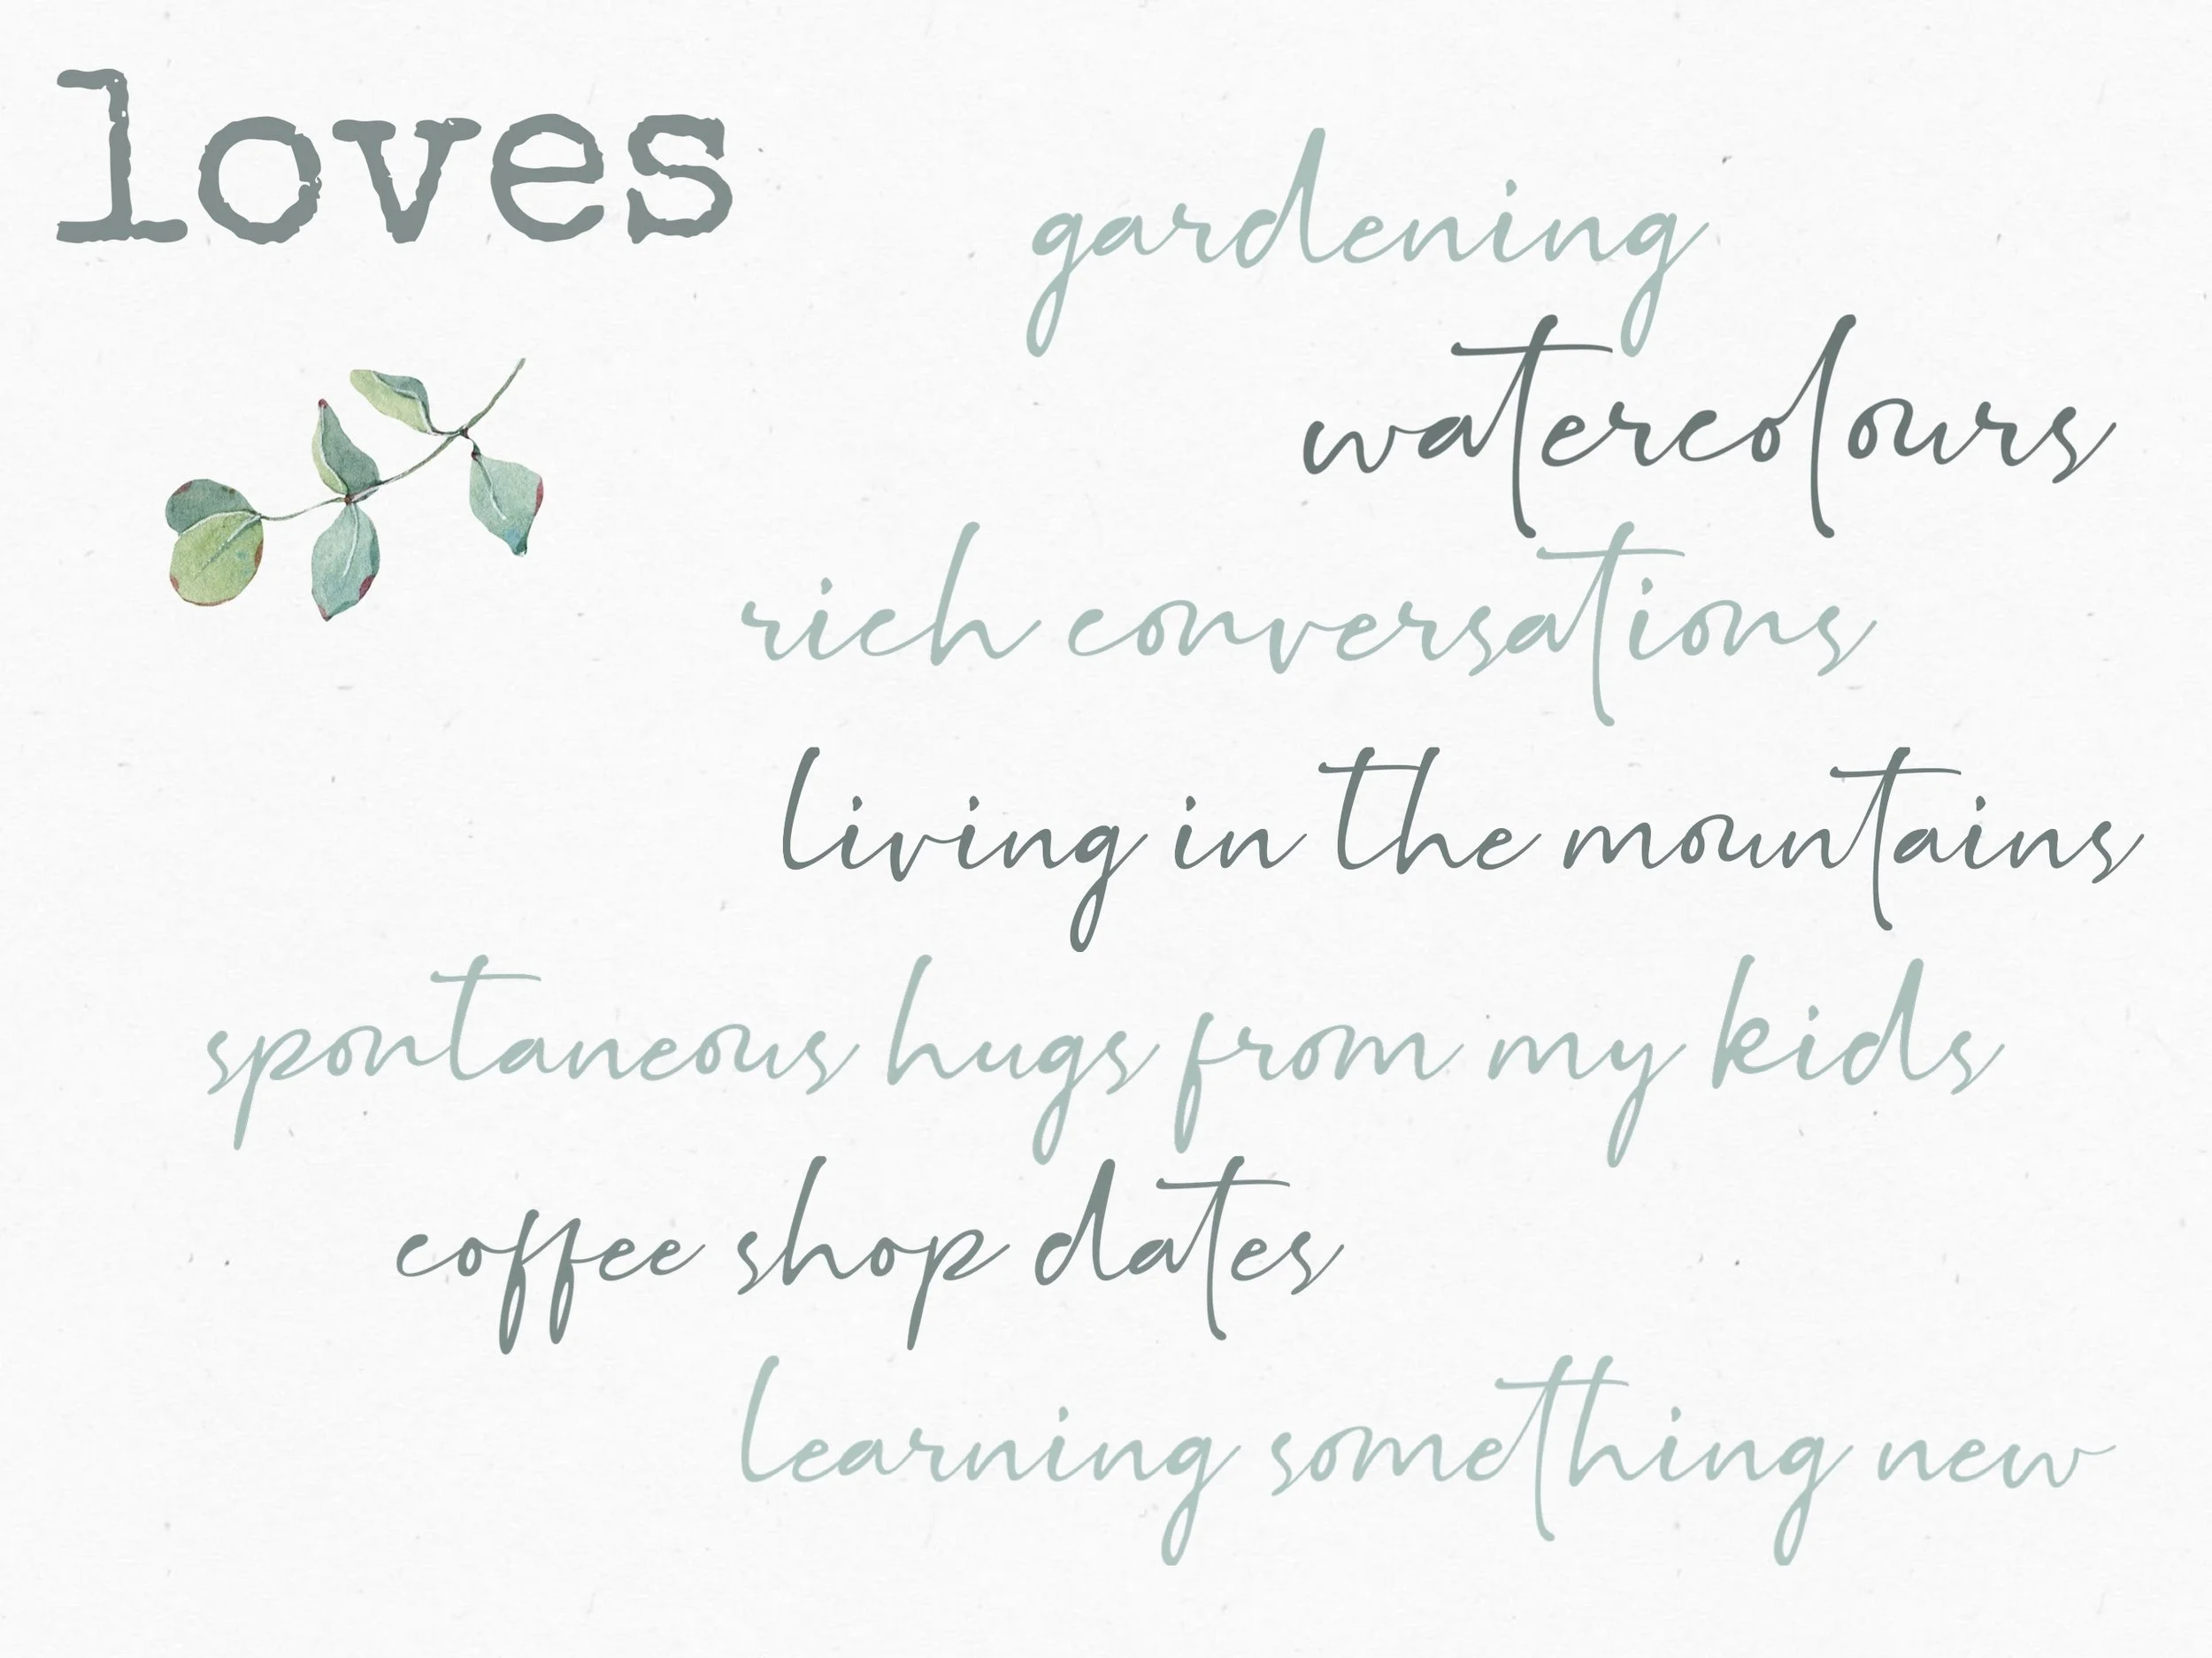 loves
gardening
watercolours
rich conversations
living in the mountains
spontaneous hugs from my kids
coffee shop dates
learning something new